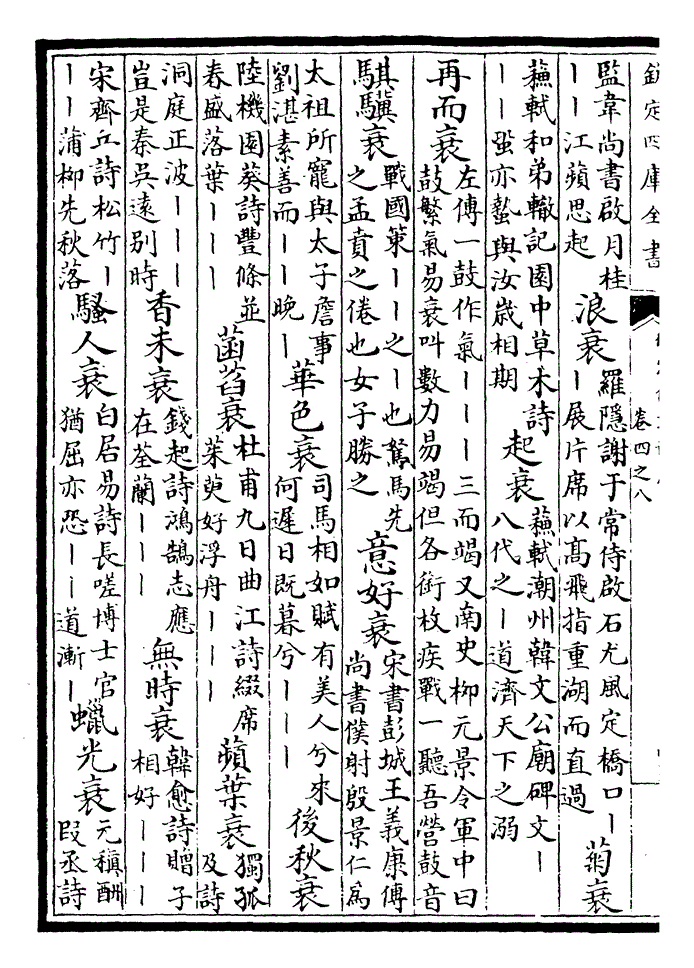 欽定四庫全書
卷四之八
監韋尚書啟月桂
丨丨江蘋思起
浪衰
羅隱謝于常侍啟石尤風定橋口丨
丨展片席以高飛指重湖而直過
菊衰
蘓軾和弟轍記園中草木詩
丨丨蛩亦蟄與汝歲相期
起衰
蘓軾潮州韓文公廟碑文丨
八代之丨道濟天下之溺
再而衰
左傳一鼓作氣丨丨丨三而竭又南史柳元景令軍中曰
鼓繁氣易衰叫數力易竭但各銜枚疾戰一聽吾營鼓音
騏驥衰
戰國策丨丨之丨也駑馬先
之孟賁之倦也女子勝之
意好衰
宋書彭城王義康傳
尚書僕射殷景仁為
太祖所寵與太子詹事
劉湛素善而丨丨晚丨
華色衰
司馬相如賦有美人兮來
何遲日既暮兮丨丨丨
後秋衰
陸機園葵詩豐條並
春盛落葉丨丨丨
菡萏衰
杜甫九日曲江詩綴席
茱萸好浮舟丨丨丨
蘋葉衰
獨孤
及詩
洞庭正波丨丨丨
豈是秦吳遠别時
香未衰
錢起詩鴻鵠志應
在荃蘭丨丨丨
無時衰
韓愈詩贈子
相好丨丨丨
宋齊丘詩松竹丨
丨丨蒲栁先秋落
騷人衰
白居易詩長嗟博士官
猶屈亦恐丨丨道漸丨
蠟光衰
元稹酬
段丞詩